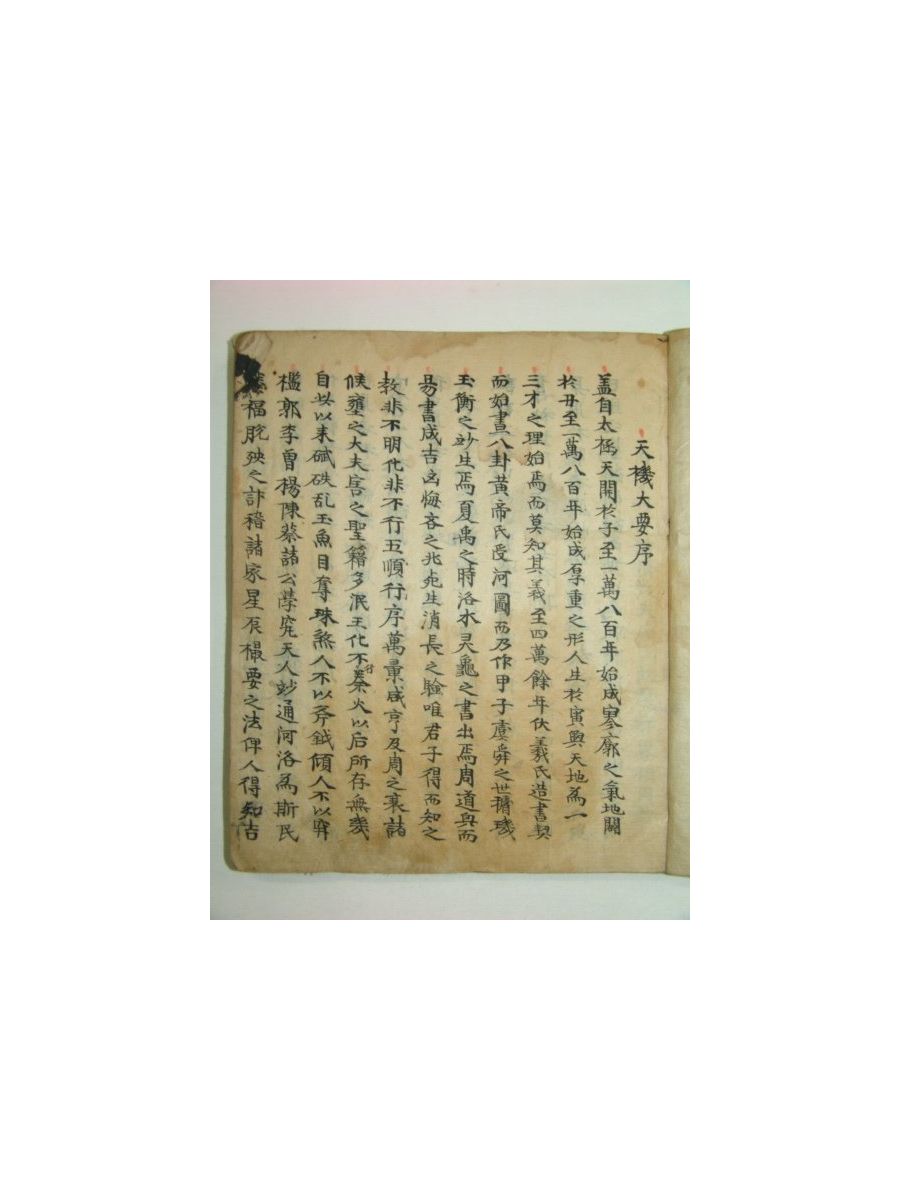 天機大要序
盖自太極天開於子至一萬八百年始成寥廓之氣地闢
於丑至一萬八百年始成厚重之形人生於寅與天地為一
三才之理始焉而莫知其義至四萬餘年伏羲氏造書契
而始畫八卦黃帝氏受河圖而乃作甲子虞舜之世璿璣
玉衡之妙生焉夏禹之時洛水灵龜之書出焉周道興而
易書成吉凶悔吝之兆兆生消長之驗唯君子得而知之
教非不明化非不行五順行序萬彙咸亨及周之衰諸
候壅之大夫害之聖籍多泯王化不行秦火以后所存無幾
自此以来碔砆乱玉魚目奪珠煞人不以斧鉞傾人不以穽
檻郭李曾楊陳蔡諸公學究天人妙通河洛為斯民
福脫殃之計稽諸家星辰撮要之法俾人得知吉